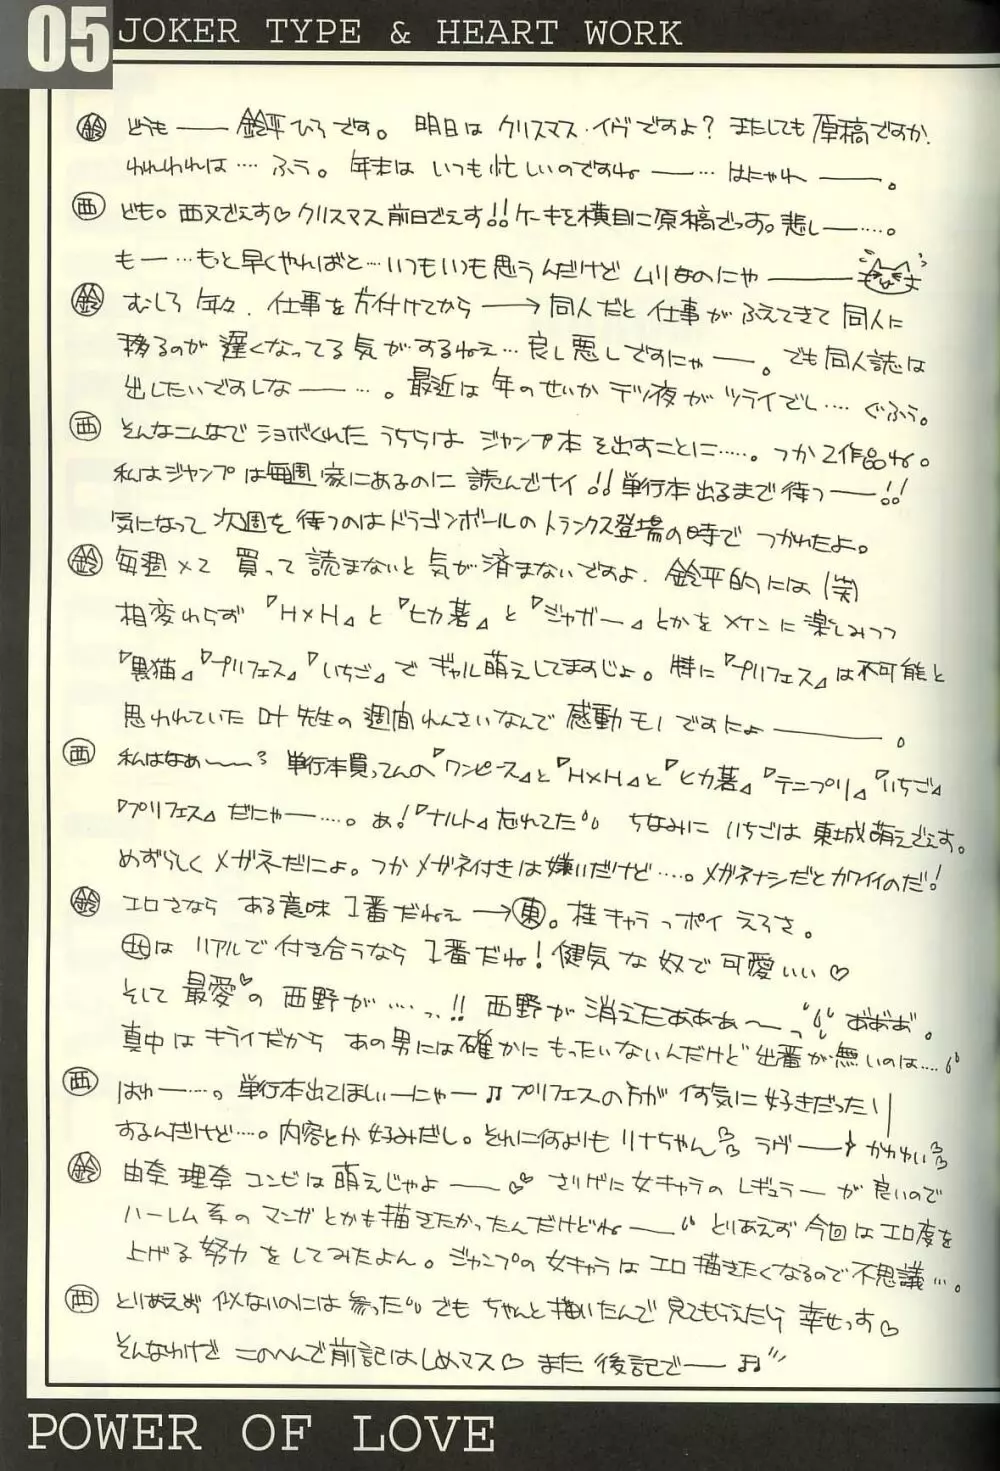 05 JOKER TYPE & HEART WORK
鈴 どうも―― 鈴平ひろです。 明日は クリスマス・イヴですよ？ またしても 原稿ですか、
われわれは…. ふぅ。 年末は いつも忙しいのですね――… はにゃれ――。
西 ども。西又でぇす♡クリスマス前日でぇす!!ケーキを横目に原稿でっす。悲し――…..。
もー…もっと早くやればと…いつもいつも思うんだけど ムリなのにゃ――
鈴 むしろ 年々、仕事を片付けてから ――→ 同人だと 仕事が ふえてきて 同人に
移るのが 遅くなってる気がするねぇ… 良し悪しですにゃ――。でも同人誌は
出したいですしな――….。 最近は 年のせいか テツ夜が ツライでし…. ぐふぅ。
西 そんなこんなで ショボくれた うちらは ジャンプ本 を出すことに…..。つか2作品ね。
私はジャンプは毎週 家にあるのに 読んでナイ!!単行本出るまで待つ――!!
気になって 次週を 待つのはドラゴンボールのトランクス登場の時で つかれたよ。
鈴 毎週×2 買って 読まないと 気が済まないですよ、鈴平的には (笑)
相変わらず 『H×H』と『ヒカ碁』と『ジャガー』とかを メインに 楽しみつつ
『黒猫』『プリフェス』『いちご』で ギャル萌えしてますじょ。特に『プリフェス』は不可能と
思われていた 叶先生の 週間れんさいなんで 感動モノですにょ――。
西 私はなぁ～～? 単行本買ってんの『ワンピース』と『H×H』と『ヒカ碁』『テニプリ』『いちご』
『プリフェス』だにゃ――….。あ!『ナルト』忘れてた ちなみに いちごは 東城萌えでぇす。
めずらしく メガネだにょ。つか メガネ付きは嫌いだけど…..。メガネナシだとカワイイのだ!
鈴 エロさなら ある意味 1番だねぇ ―→東。桂キャラっポイ えろさ。
北は リアルで 付き合うなら 1番だね! 健気な奴で可愛いい♡
そして 最愛♡の 西野が….っ!! 西野が 消えたぁぁぁ～っ おおお。
真中はキライだから あの男には確かに もったいないんだけど 出番が無いのは….
西 はゎ――….。単行本出てほしぃーにゃー♫ プリフェスの方が 何気に 好きだったり
するんだけど….。内容とか 好みだし。それに何よりも リナちゃん ラヴ―― かわゆい
鈴 由奈 理奈 コンビは 萌えじゃよ―― ♡♡ さりげに女キャラの レギュラーが良いので
ハーレム系の マンガとかも 描きたかったんだけどね―― とりあえず 今回は エロ度を
上げる努力 を してみたよん。ジャンプの女キャラは エロ 描きたくなるので不思議…。
西 とりあえず 似ないのには 参った でも ちゃんと 描いたんで 見てもらえたら 幸せっす♡
そんなわけで このへんで前記はじめマス♡ また 後記で―― ♫
POWER OF LOVE